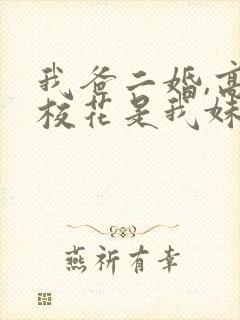 我爸二婚,高
校花是我妹
燕祈有幸